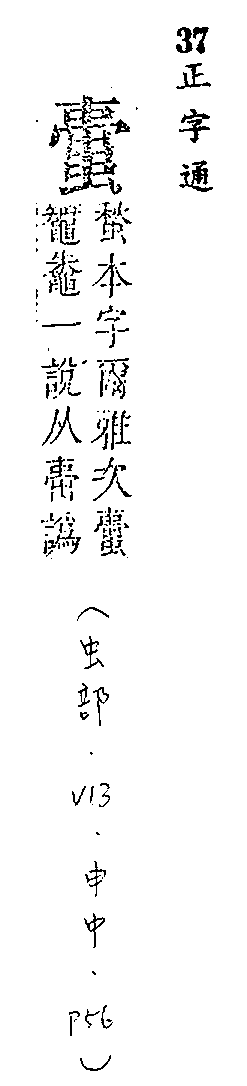 37正字通
蝥本字爾雅次
鼅鼄一說从譌
(虫部.V13.申中.P56)